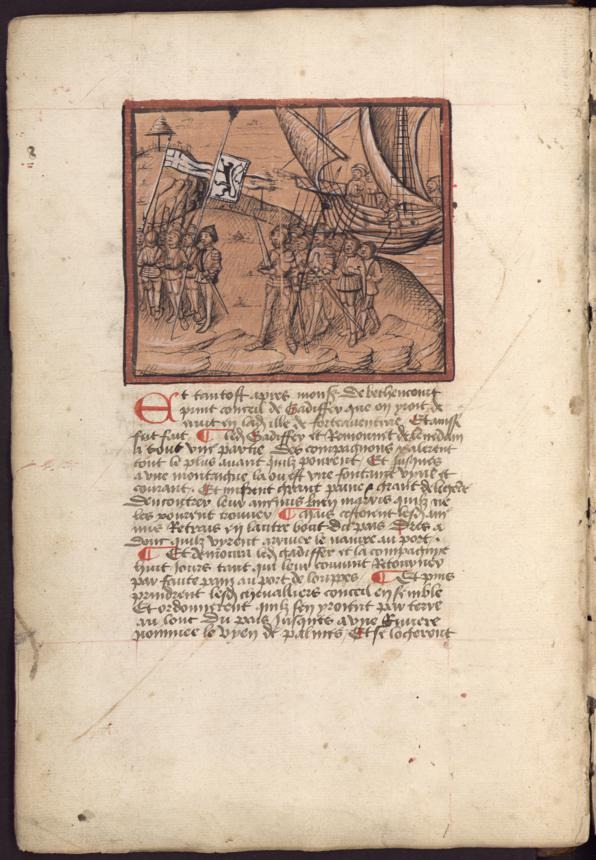 Et tantost apres mons. de bethencourt
print conseil de Gadiffer que on yroit de
nuit en lad. ille de forteaventure Et ainsi
fut fait ¶ Led. Gadiffer et Remonnet de
a tout une partie des compagnons y alerent
tout le plus avant quilz pourent Et jusques
a une montaigne la ou est une fontaine vive et
courant. Et mirent grant paine
dencontrer leurs annemis bien marris quilz ne
les pourent trouver ¶ Mais cestoient lesd. an
nemis Retrais en lautre bout du pais Dres a
donc quilz virent arriver le navire au port.
¶ Et demoura led. gadiffer et la compagnie
huit jours tant qui leur convint Retourner
par faute pain au port de louppes ¶ Et puis
prindrent lesd. chevalliers conseil ensemble
Et ordonnerent quilz sen yroient par terre
au lonc du pais jusques a une Riviere
nommee le vien de palmes Et se logeroient